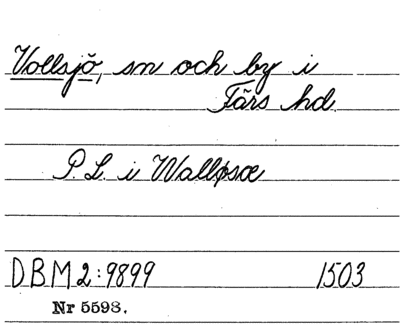 Vollsjö, sn och by i
Färs hd.
P. L. i Walløsæ
DBM 2:9899 1503
Nr 5598.